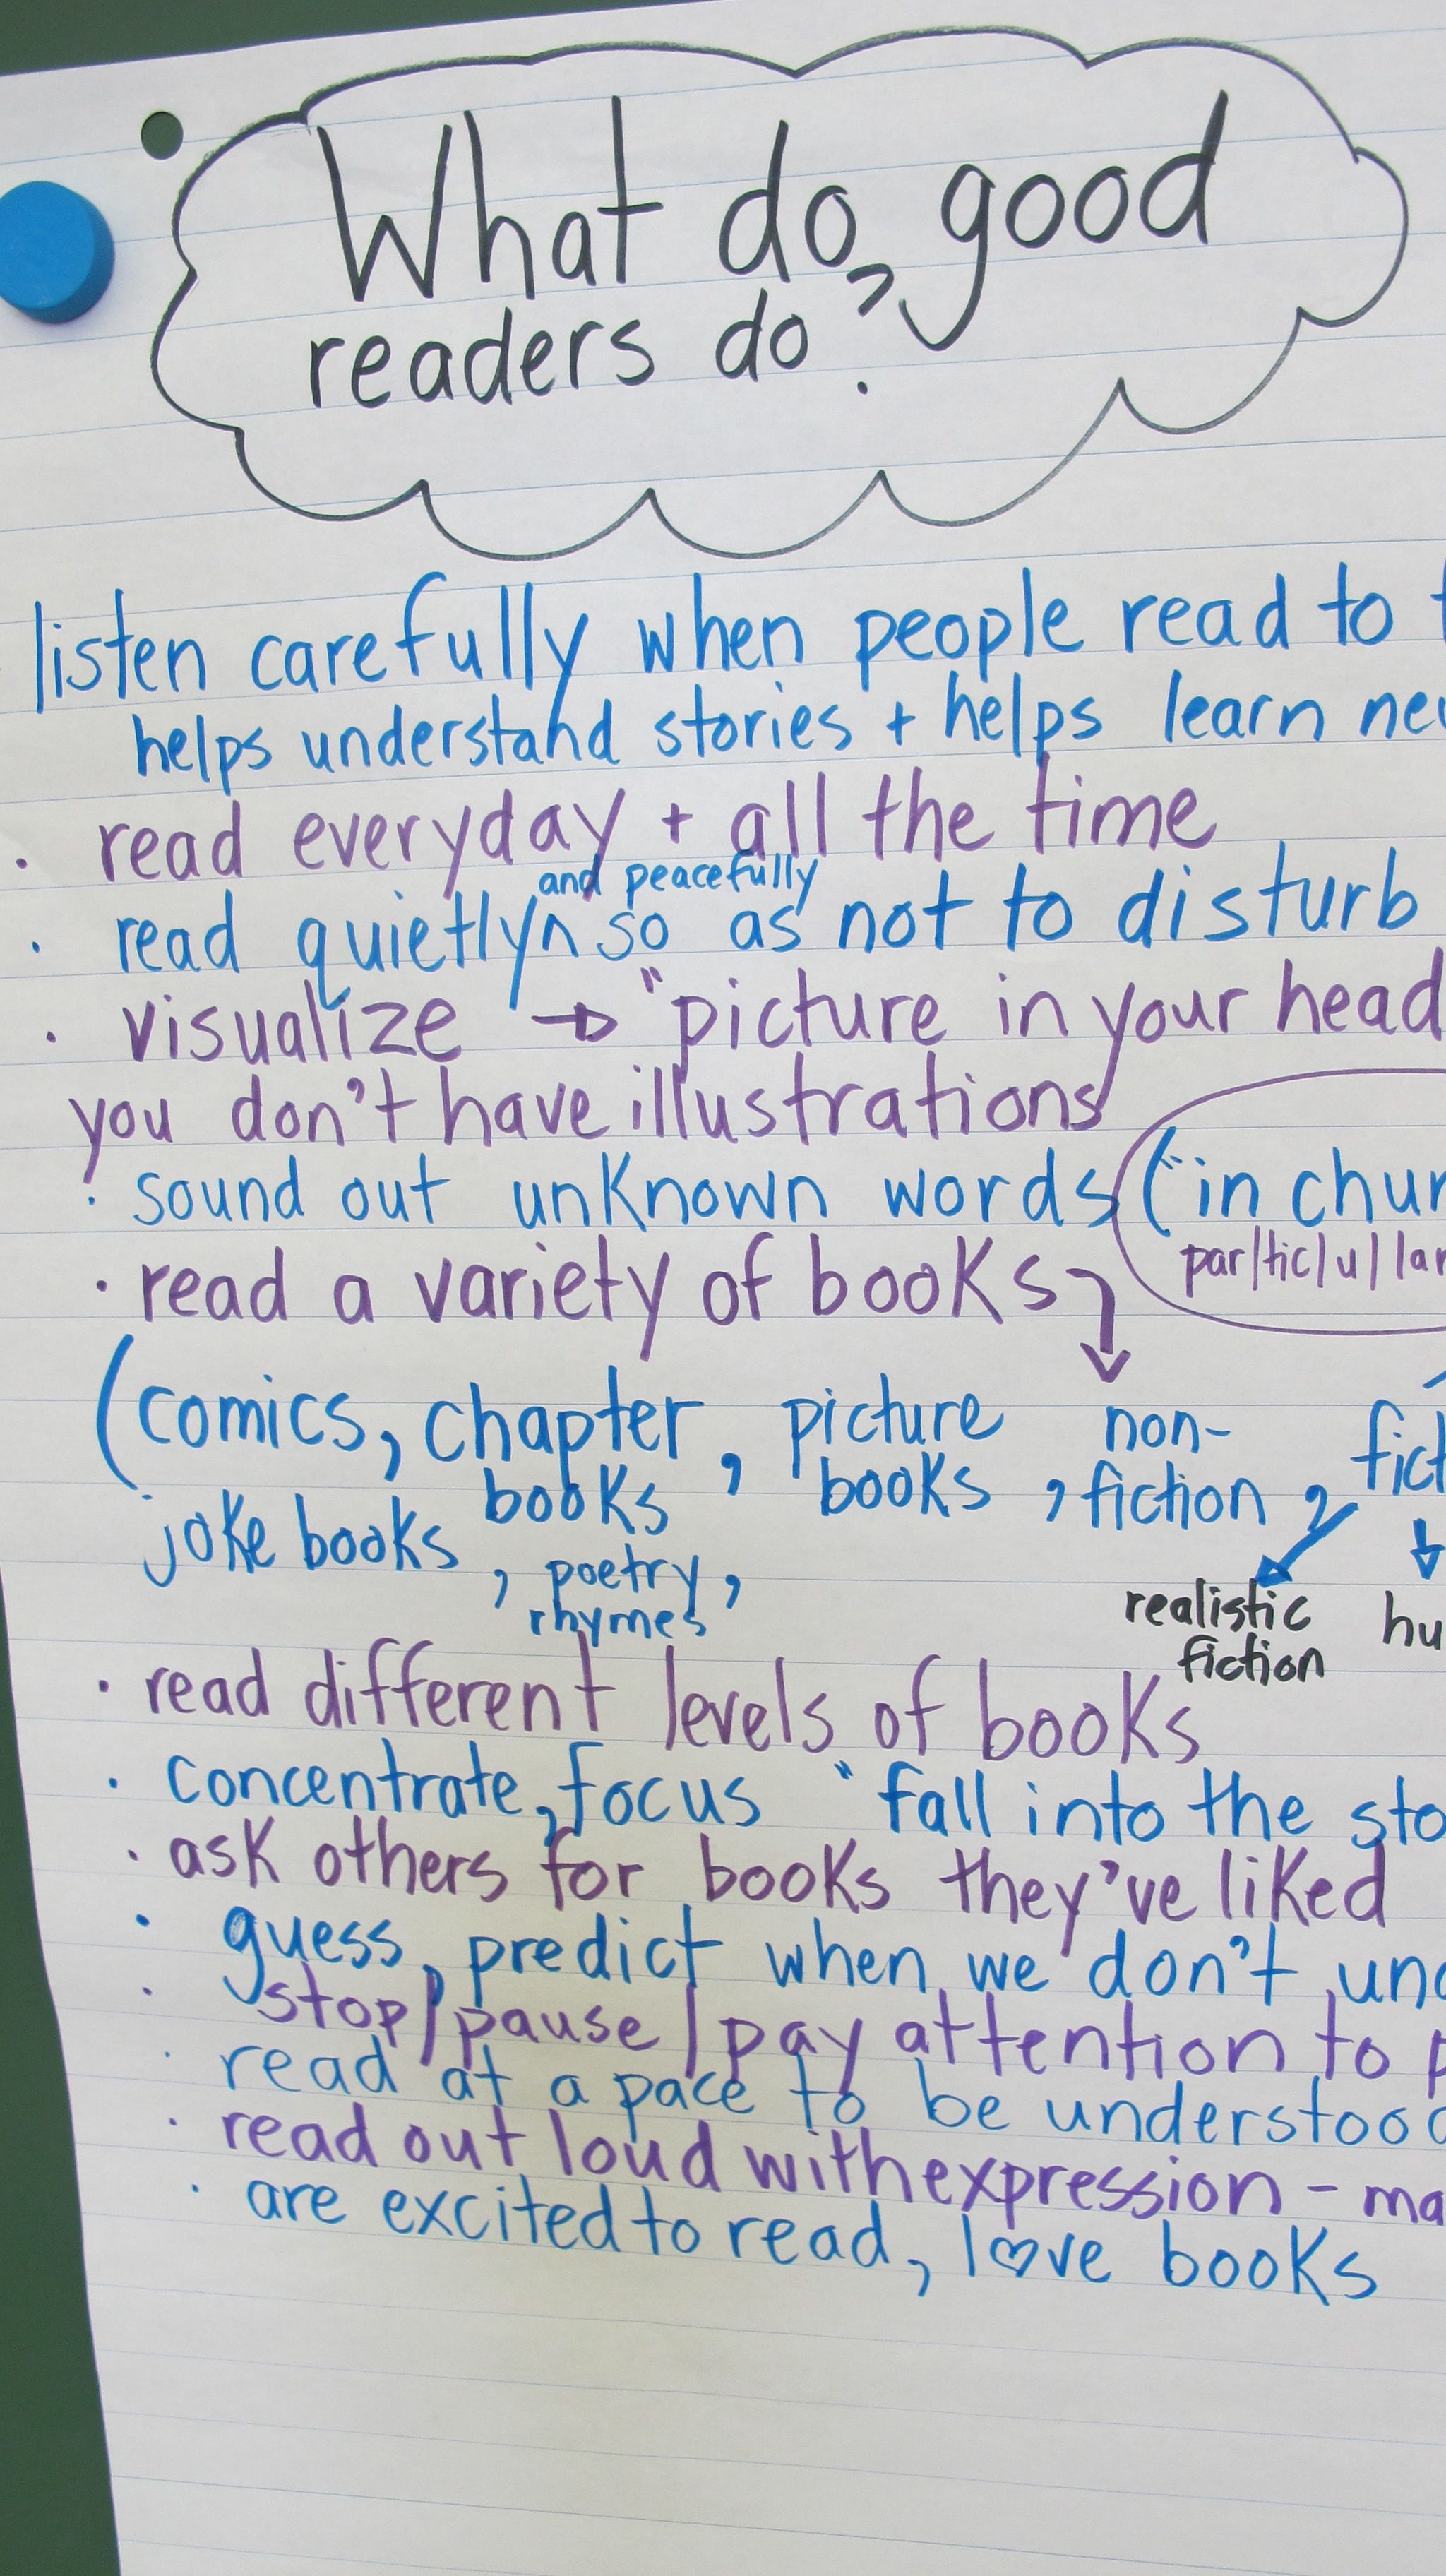 What do good
readers do?
listen carefully when people read to
helps understand stories + helps learn
• read everyday + all the time
and peacefully
• read quietly^ so as not to disturb
• visualize → "picture in your head
you don't have illustrations
• sound out unknown words ("in
par/tic/u/lar
• read a variety of books
(comics, chapter books, picture books, non-fiction,
joke books, poetry, rhymes
realistic
fiction
• read different levels of books
• concentrate, focus "fall into the
• ask others for books they've liked
• guess, predict when we don't
• stop/pause/pay attention to
• read at a pace to be understood
• read out loud with expression -
• are excited to read, love books